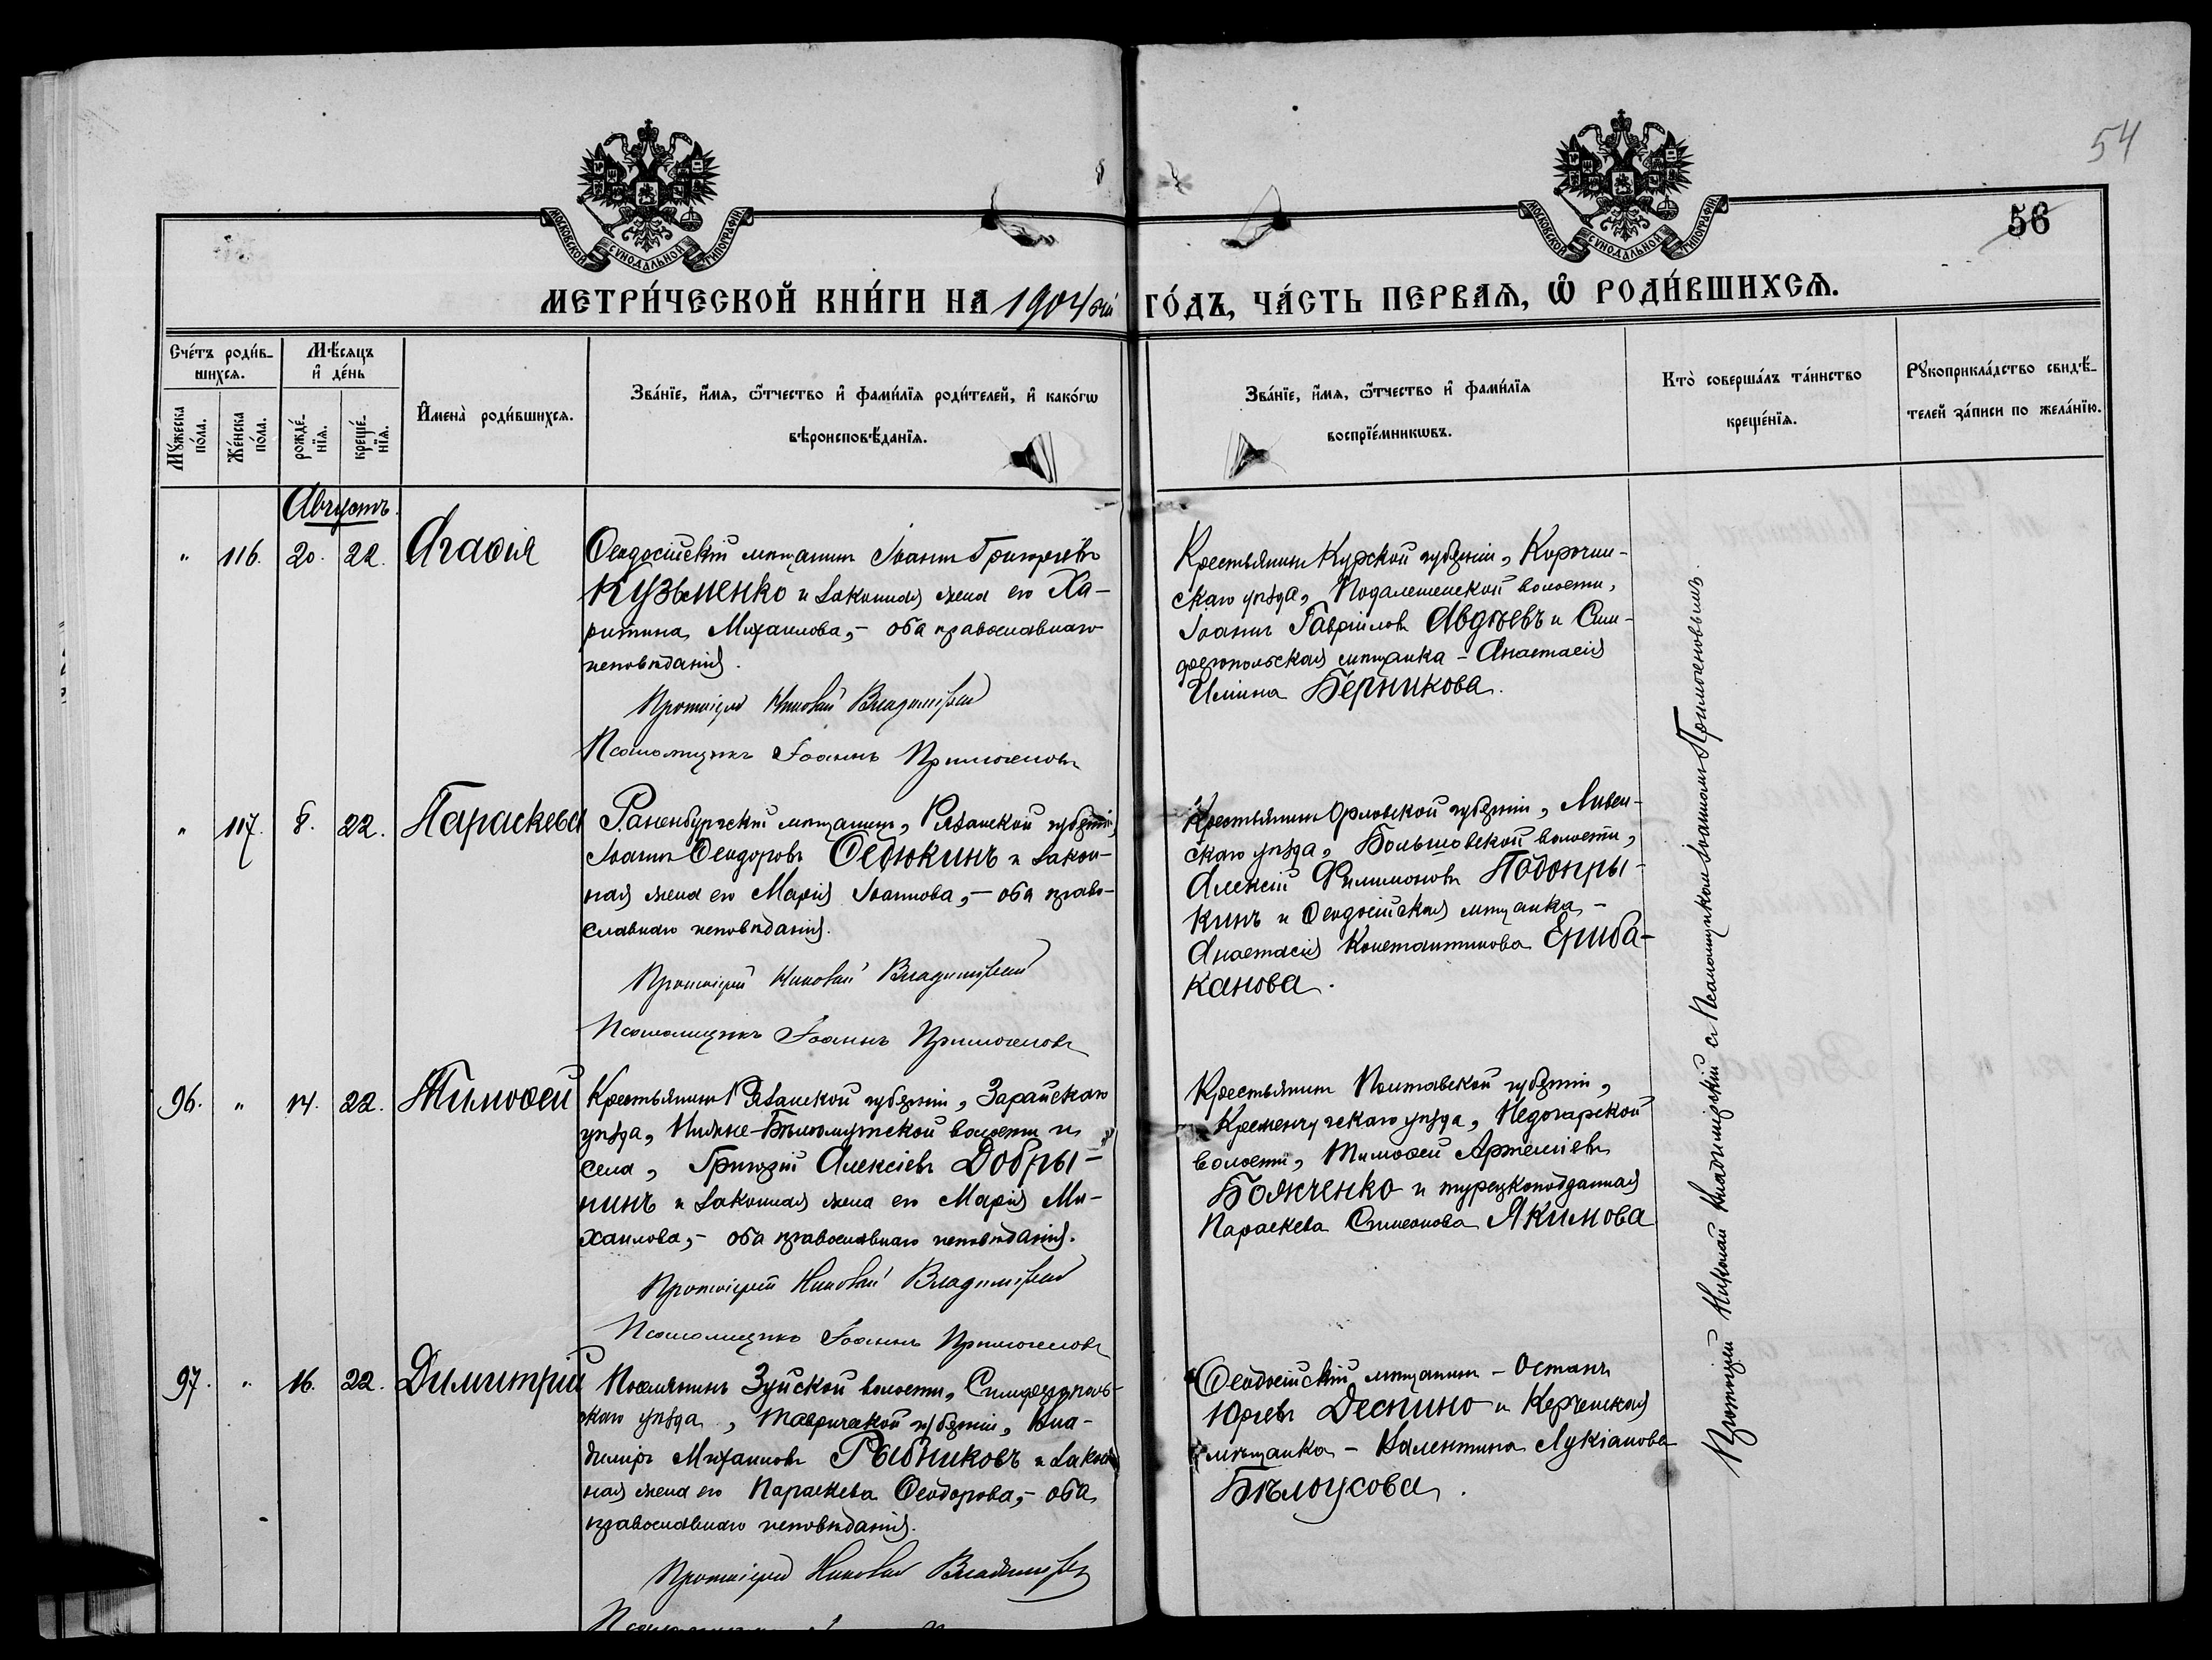 54
56
МОСКОВСКОЙ СѴНОДАЛЬНОЙ ТИПОГРАФІИ
МОСКОВСКОЙ СѴНОДАЛЬНОЙ ТИПОГРАФІИ
МЕТРИ́ЧЕСКОЙ КНИ́ГИ НА 1904 ый ГО́ДЪ, ЧА́СТЬ ПЕРВАѦ, Ѡ҆ РОДИ́ВШИХСѦ.
Сче́тъ роди́в-
шихсѧ.
Мѣ́сѧцъ
и҆ де́нь
Мꙋ́жеска по́ла.
Же́нска по́ла.
рожде́-
нїѧ.
креще́-
нїѧ.
И҆мена̀ роди́вшихсѧ.
Зва́нїе, и҆́мѧ, ѻ҆́тчество и҆ фами́лїѧ роди́телей, и҆ како́гѡ
вѣроисповѣ́данїѧ.
Зва́нїе, и҆́мѧ, ѻ҆́тчество и҆ фами́лїѧ
воспрїе́мникѡвъ.
Кто̀ соверша́лъ та́инство
креще́нїѧ.
Рꙋкоприкла́дство свидѣ́-
телей за́писи по жела́нїю.
Августъ.
" 116. 20. 22. Агаѳія
Ѳеодосійскій мѣщанинъ Іоаннъ Григорьевъ
Кузьменко и законная жена его Ха-
ритина Михаилова,- оба православнаго
исповѣданія.
Протоіерей Николай Владимірскій
Псаломщикъ Іоаннъ Примогеновъ
Крестьянинъ Курской губерніи, Корочан-
скаго уѣзда, волости,
Іоаннъ Гавріиловъ Авдѣевъ и Сим-
феропольская мѣщанка - Анастасія
Ильина Берникова.
" 117. 8. 22. Параскева
Раненбургскій мѣщанинъ, Рязанской губерніи,
Іоаннъ Ѳеодоровъ Ѳедюкинъ и закон-
ная жена его Марія Іоаннова,- оба право-
славнаго исповѣданія.
Протоіерей Николай Владимірскій
Псаломщикъ Іоаннъ Примогеновъ
Крестьянинъ Орловской губерніи, Ливен-
скаго уѣзда, волости,
Алексій Филимоновъ Подопры-
кинъ и Ѳеодосійская мѣщанка -
Анастасія Константинова Ериба-
канова.
96. " 14. 22. Тимоѳей
Крестьянинъ Рязанской губерніи, Зарайскаго
уѣзда, Нижне-Бѣлоомутской волости и
села, Григорій Алексіевъ Добры-
нинъ и законная жена его Марія Ми-
хаилова,- оба православнаго исповѣданія.
Протоіерей Николай Владимірскій
Псаломщикъ Іоаннъ Примогеновъ
Крестьянинъ Полтавской губерніи,
Кременчугскаго уѣзда, Недогарской
волости, Тимоѳей Артеміевъ
Божченко и турецкоподданная
Параскева Симеонова Якимова
97. " 16. 22. Димитрій
Поселянинъ Зуйской волости, Симферополь-
скаго уѣзда, Таврической губерніи, Вла-
диміръ Михаиловъ Рыбниковъ и закон-
ная жена его Параскева Ѳеодорова,- оба
православнаго исповѣданія.
Протоіерей Николай Владимірскій
Ѳеодосійскій мѣщанинъ -
Юрьевъ Деспино и Керченская
мѣщанка - Валентина Лукіанова
Бѣлоусова.
Протоіерей Николай Владимірскій съ Псаломщикомъ Іоанномъ Примогеновымъ.